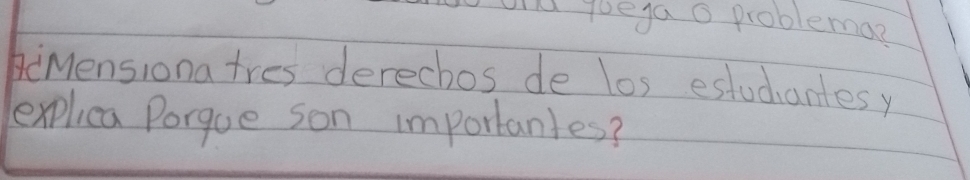 queja o problema?
¿Mensiona tres derechos de los estudiantes y
explica Porque son importantes?